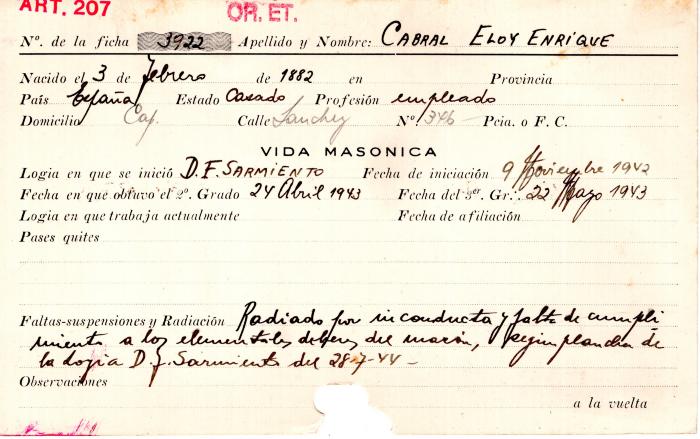 ART. 207
OR. ET.
Nº. de la ficha 3922 Apellido y Nombre: CABRAL ELOY ENRIQUE
Nacido el 3 de febrero de 1882 en Provincia
País España Estado Casado Profesión empleado
Domicilio Cap. Calle Sanchez Nº 346 Pcia. o F. C.
VIDA MASONICA
Logia en que se inició D. F. SARMIENTO Fecha de iniciación 9 Noviembre 1942
Fecha en que obtuvo el 2º. Grado 24 Abril 1943 Fecha del 3er. Gr∴ 22 Mayo 1943
Logia en que trabaja actualmente Fecha de afiliación
Pases quites
Faltas-suspensiones y Radiación Radiado por inconducta y falta de cumpli
miento a los elementales deberes del masón, según plancha de
la logia D. F. Sarmiento del 28-7-44 -
Observaciones
a la vuelta